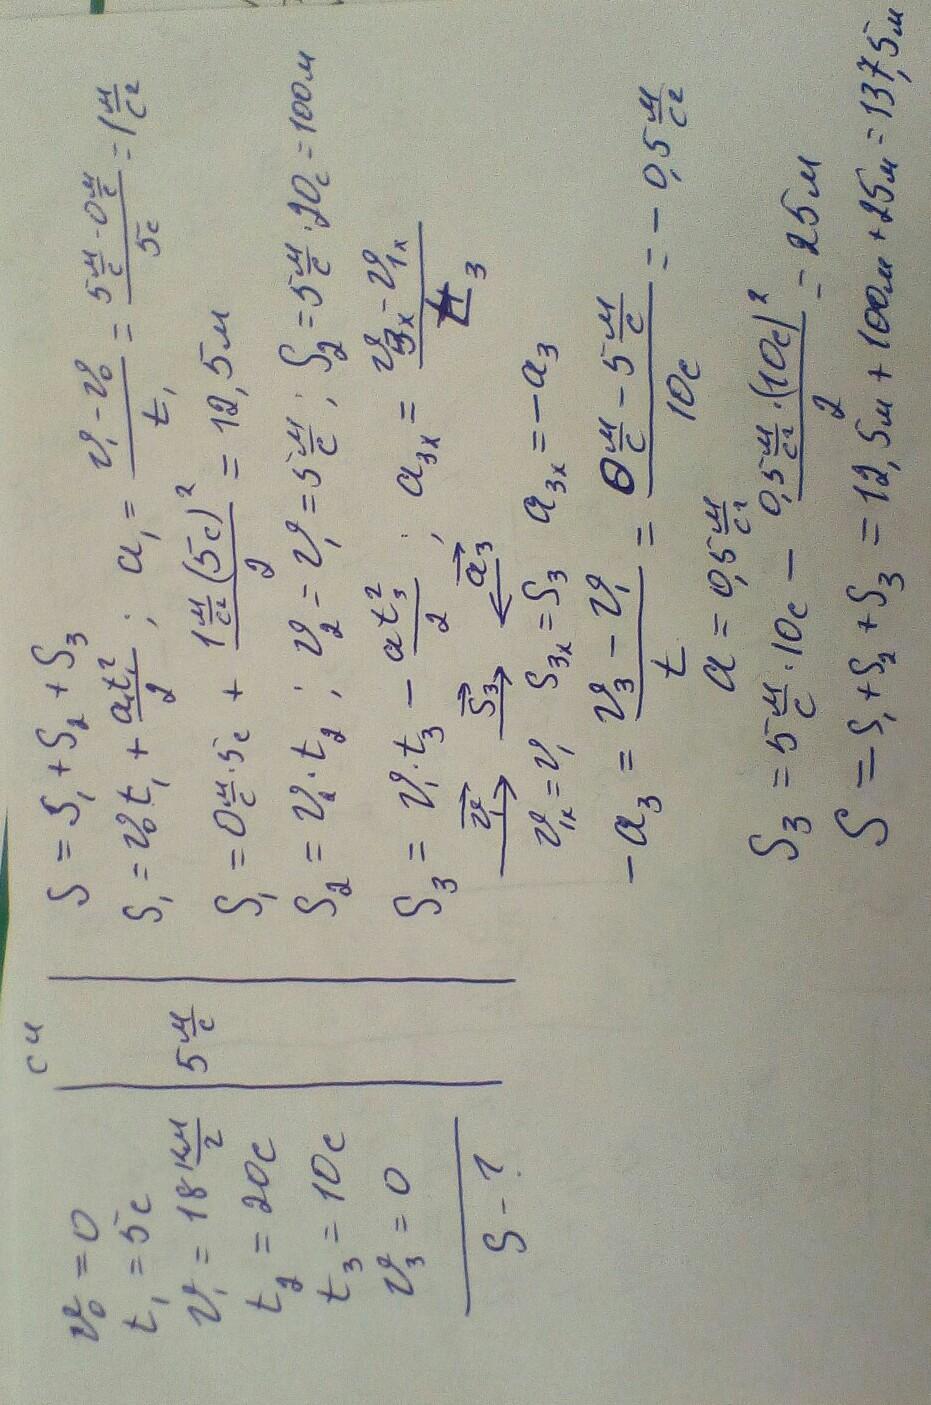 v₀ = 0
t₁ = 5с
v₁ = 18 км/г
t₂ = 20с
t₃ = 10с
v₃ = 0
S - ?
СИ
5 м/с
S = S₁ + S₂ + S₃
S₁ = v₀t₁ + a₁t₁²/2 ; a₁ = (v₁ - v₀)/t₁ = (5 м/с - 0 м/с)/5с = 1 м/с²
S₁ = 0 м/с · 5с + 1 м/с² (5с)²/2 = 12,5м
S₂ = v₂ · t₂ ; v₂ = v₁ = 5 м/с ; S₂ = 5 м/с · 20с = 100м
S₃ = v₁ · t₃ - at₃²/2 ; a₃ₓ = (v₃ₓ - v₁ₓ)/t₃
v₁→ S₃→ a₃→
v₁ₓ = v₁ S₃ₓ = S₃ a₃ₓ = -a₃
-a₃ = (v₃ - v₁)/t = (0 м/с - 5 м/с)/10с = -0,5 м/с²
a = 0,5 м/с²
S₃ = 5 м/с · 10с - 0,5 м/с² · (10с)²/2 = 25м
S = S₁ + S₂ + S₃ = 12,5м + 100м + 25м = 137,5м